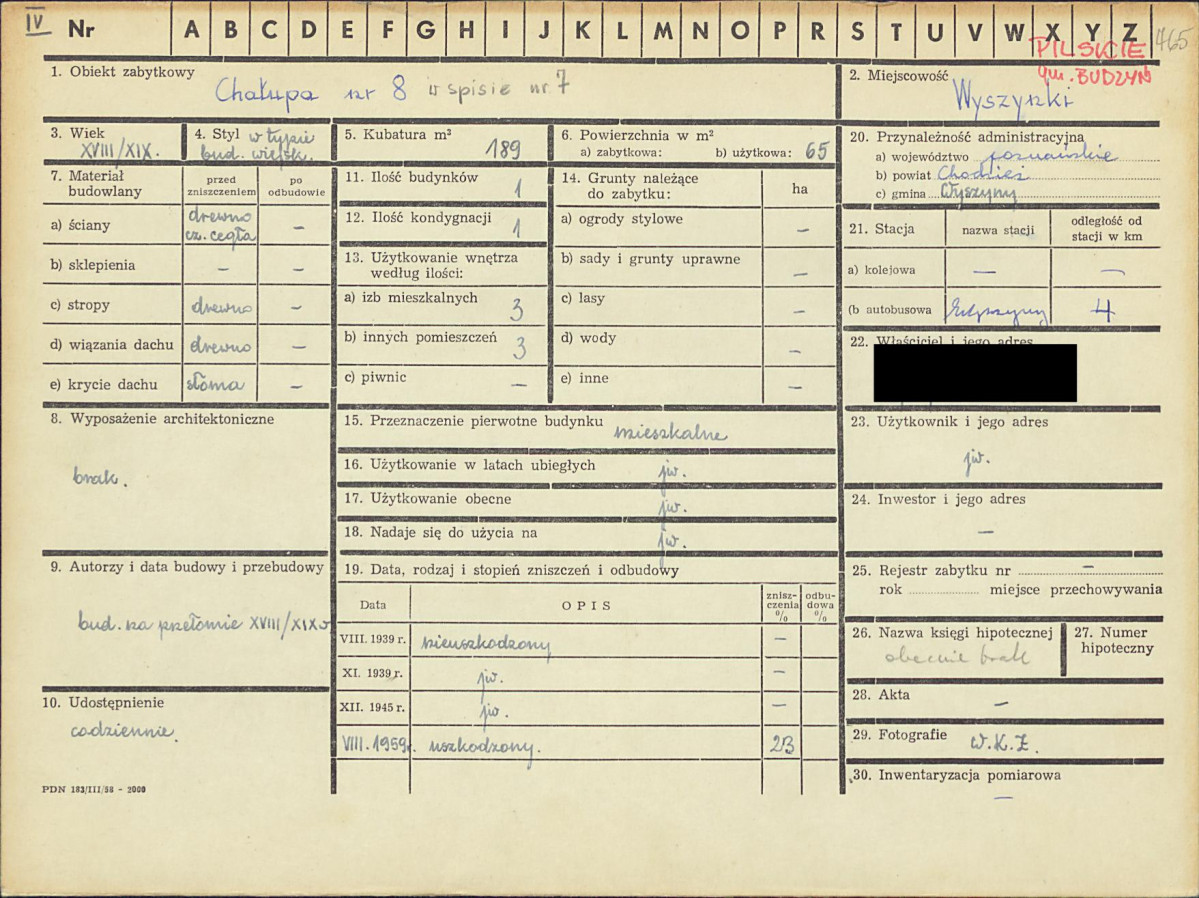 IV Nr A B C D E F G H I J K L M N O P R S T U V W X Y Z 465
PILSKIE
gm. BUDZYŃ
1. Obiekt zabytkowy
Chałupa nr 8 w spisie nr 7
2. Miejscowość
Wyszynki
3. Wiek
XVIII/XIX.
4. Styl w typie
bud. wiejsk.
5. Kubatura m³
189
6. Powierzchnia w m²
a) zabytkowa: b) użytkowa: 65
7. Materiał
budowlany
przed
zniszczeniem
po
odbudowie
a) ściany
drewno
cz. cegła
–
b) sklepienia – –
c) stropy drewno –
d) wiązania dachu drewno –
e) krycie dachu słoma –
8. Wyposażenie architektoniczne
brak.
9. Autorzy i data budowy i przebudowy
bud. na przełomie XVIII/XIX w
10. Udostępnienie
codziennie.
PDN 183/III/58 - 2000
11. Ilość budynków 1
12. Ilość kondygnacji 1
13. Użytkowanie wnętrza
według ilości:
a) izb mieszkalnych 3
b) innych pomieszczeń 3
c) piwnic –
14. Grunty należące
do zabytku:
ha
a) ogrody stylowe –
b) sady i grunty uprawne –
c) lasy –
d) wody –
e) inne –
15. Przeznaczenie pierwotne budynku mieszkalne
16. Użytkowanie w latach ubiegłych jw.
17. Użytkowanie obecne jw.
18. Nadaje się do użycia na jw.
19. Data, rodzaj i stopień zniszczeń i odbudowy
Data
OPIS
znisz-
czenia
%
odbu-
dowa
%
VIII. 1939 r. nieuszkodzony –
XI. 1939 r. jw. –
XII. 1945 r. jw. –
VIII. 1959r. uszkodzony. 23
20. Przynależność administracyjna
a) województwo poznańskie
b) powiat Chodzież
c) gmina Wyszyny
21. Stacja
nazwa stacji
odległość od
stacji w km
a) kolejowa – –
(b autobusowa Wyszyny 4
22. Właściciel i jego adres
23. Użytkownik i jego adres
jw.
24. Inwestor i jego adres
–
25. Rejestr zabytku nr –
rok miejsce przechowywania
26. Nazwa księgi hipotecznej
obecnie brak
27. Numer
hipoteczny
28. Akta
–
29. Fotografie W.K.Z.
30. Inwentaryzacja pomiarowa
–